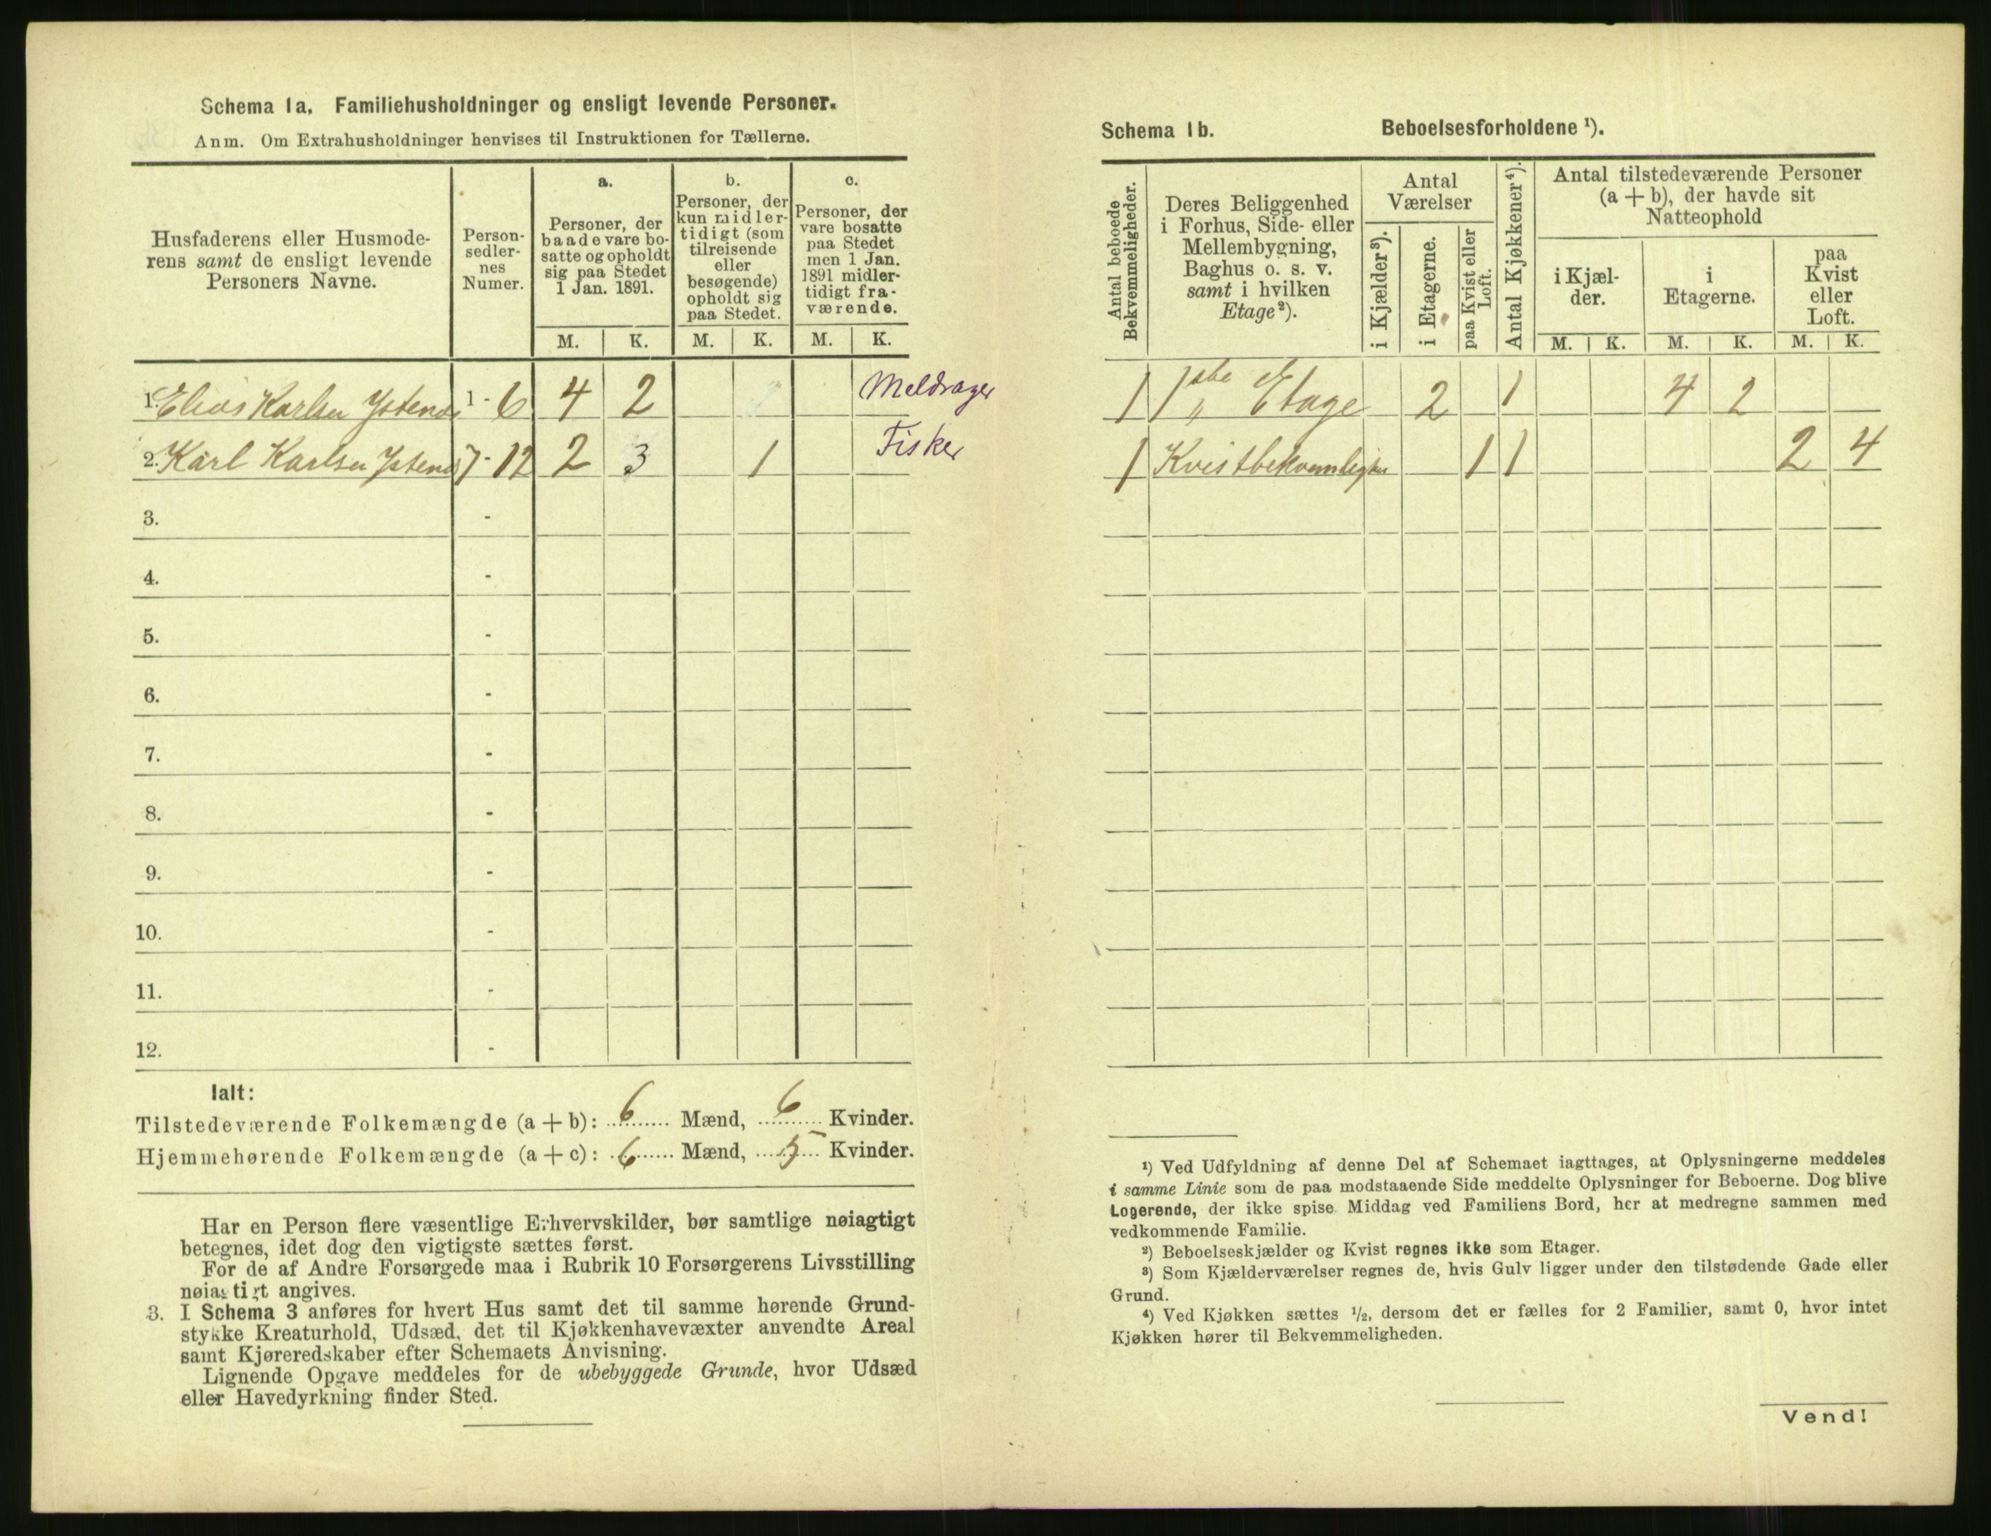 Schema 1a. Familiehusholdninger og ensligt levende Personer.
Anm. Om Extrahusholdninger henvises til Instruktionen for Tællerne.
Husfaderens eller Husmode-
rens samt de ensligt levende
Personers Navne.
Person-
sedler-
nes
Numer.
a.
Personer, der
baade vare bo-
satte og opholdt
sig paa Stedet
1 Jan. 1891.
b.
Personer, der
kun midler-
tidigt (som
tilreisende
eller
besøgende)
opholdt sig
paa Stedet.
c.
Personer, der
vare bosatte
paa Stedet
men 1 Jan.
1891 midler-
tidigt fra-
værende.
M. K. M. K. M. K.
1. Elias Karlsen Ystenes 1 - 6 4 2 Meldrager
2. Karl Karlsen Ystenes 7 - 12 2 3 1 Fisker
3. -
4. -
5. -
6. -
7. -
8. -
9. -
10. -
11. -
12. -
Ialt:
Tilstedeværende Folkemængde (a + b): 6 Mænd, 6 Kvinder.
Hjemmehørende Folkemængde (a + c): 6 Mænd, 5 Kvinder.
Har en Person flere væsentlige Erhvervskilder, bør samtlige nøiagtigt
betegnes, idet dog den vigtigste sættes først.
For de af Andre Forsørgede maa i Rubrik 10 Forsørgerens Livsstilling
nøiagtigt angives.
3. I Schema 3 anføres for hvert Hus samt det til samme hørende Grund-
stykke Kreaturhold, Udsæd, det til Kjøkkenhavevæxter anvendte Areal
samt Kjøreredskaber efter Schemaets Anvisning.
Lignende Opgave meddeles for de ubebyggede Grunde, hvor Udsæd
eller Havedyrkning finder Sted.
Schema 1b. Beboelsesforholdene ¹).
Antal beboede
Bekvemmeligheder.
Deres Beliggenhed
i Forhus, Side- eller
Mellembygning,
Baghus o. s. v.
samt i hvilken
Etage ²).
Antal
Værelser
i Kjælder ³).
i Etagerne.
paa Kvist eller
Loft.
Antal Kjøkkener ⁴).
Antal tilstedeværende Personer
(a + b), der havde sit
Natteophold
i Kjæl-
der.
i
Etagerne.
paa
Kvist
eller
Loft.
M. K. M. K. M. K.
1 1ste Etage 2 1 4 2
1 Kvistbekvemligher 1 1 2 4
¹) Ved Udfyldning af denne Del af Schemaet iagttages, at Oplysningerne meddeles
i samme Linie som de paa modstaaende Side meddelte Oplysninger for Beboerne. Dog blive
Logerende, der ikke spise Middag ved Familiens Bord, her at medregne sammen med
vedkommende Familie.
²) Beboelseskjælder og Kvist regnes ikke som Etager.
³) Som Kjælderværelser regnes de, hvis Gulv ligger under den tilstødende Gade eller
Grund.
⁴) Ved Kjøkken sættes ½, dersom det er fælles for 2 Familier, samt 0, hvor intet
Kjøkken hører til Bekvemmeligheden.
Vend!